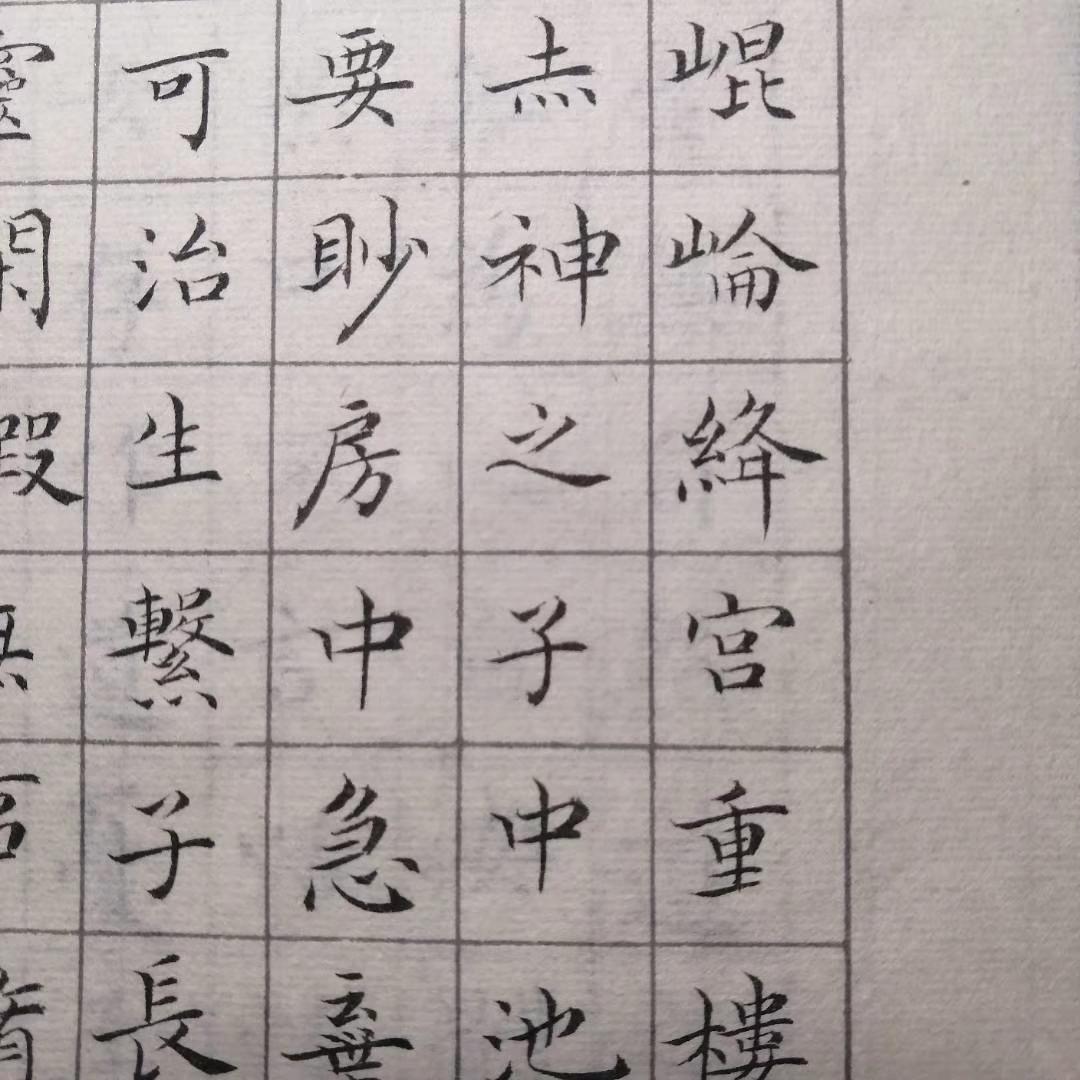 崐崘絳宫重樓
赤神之子中池
要眇房中急棄
可治生繫子長